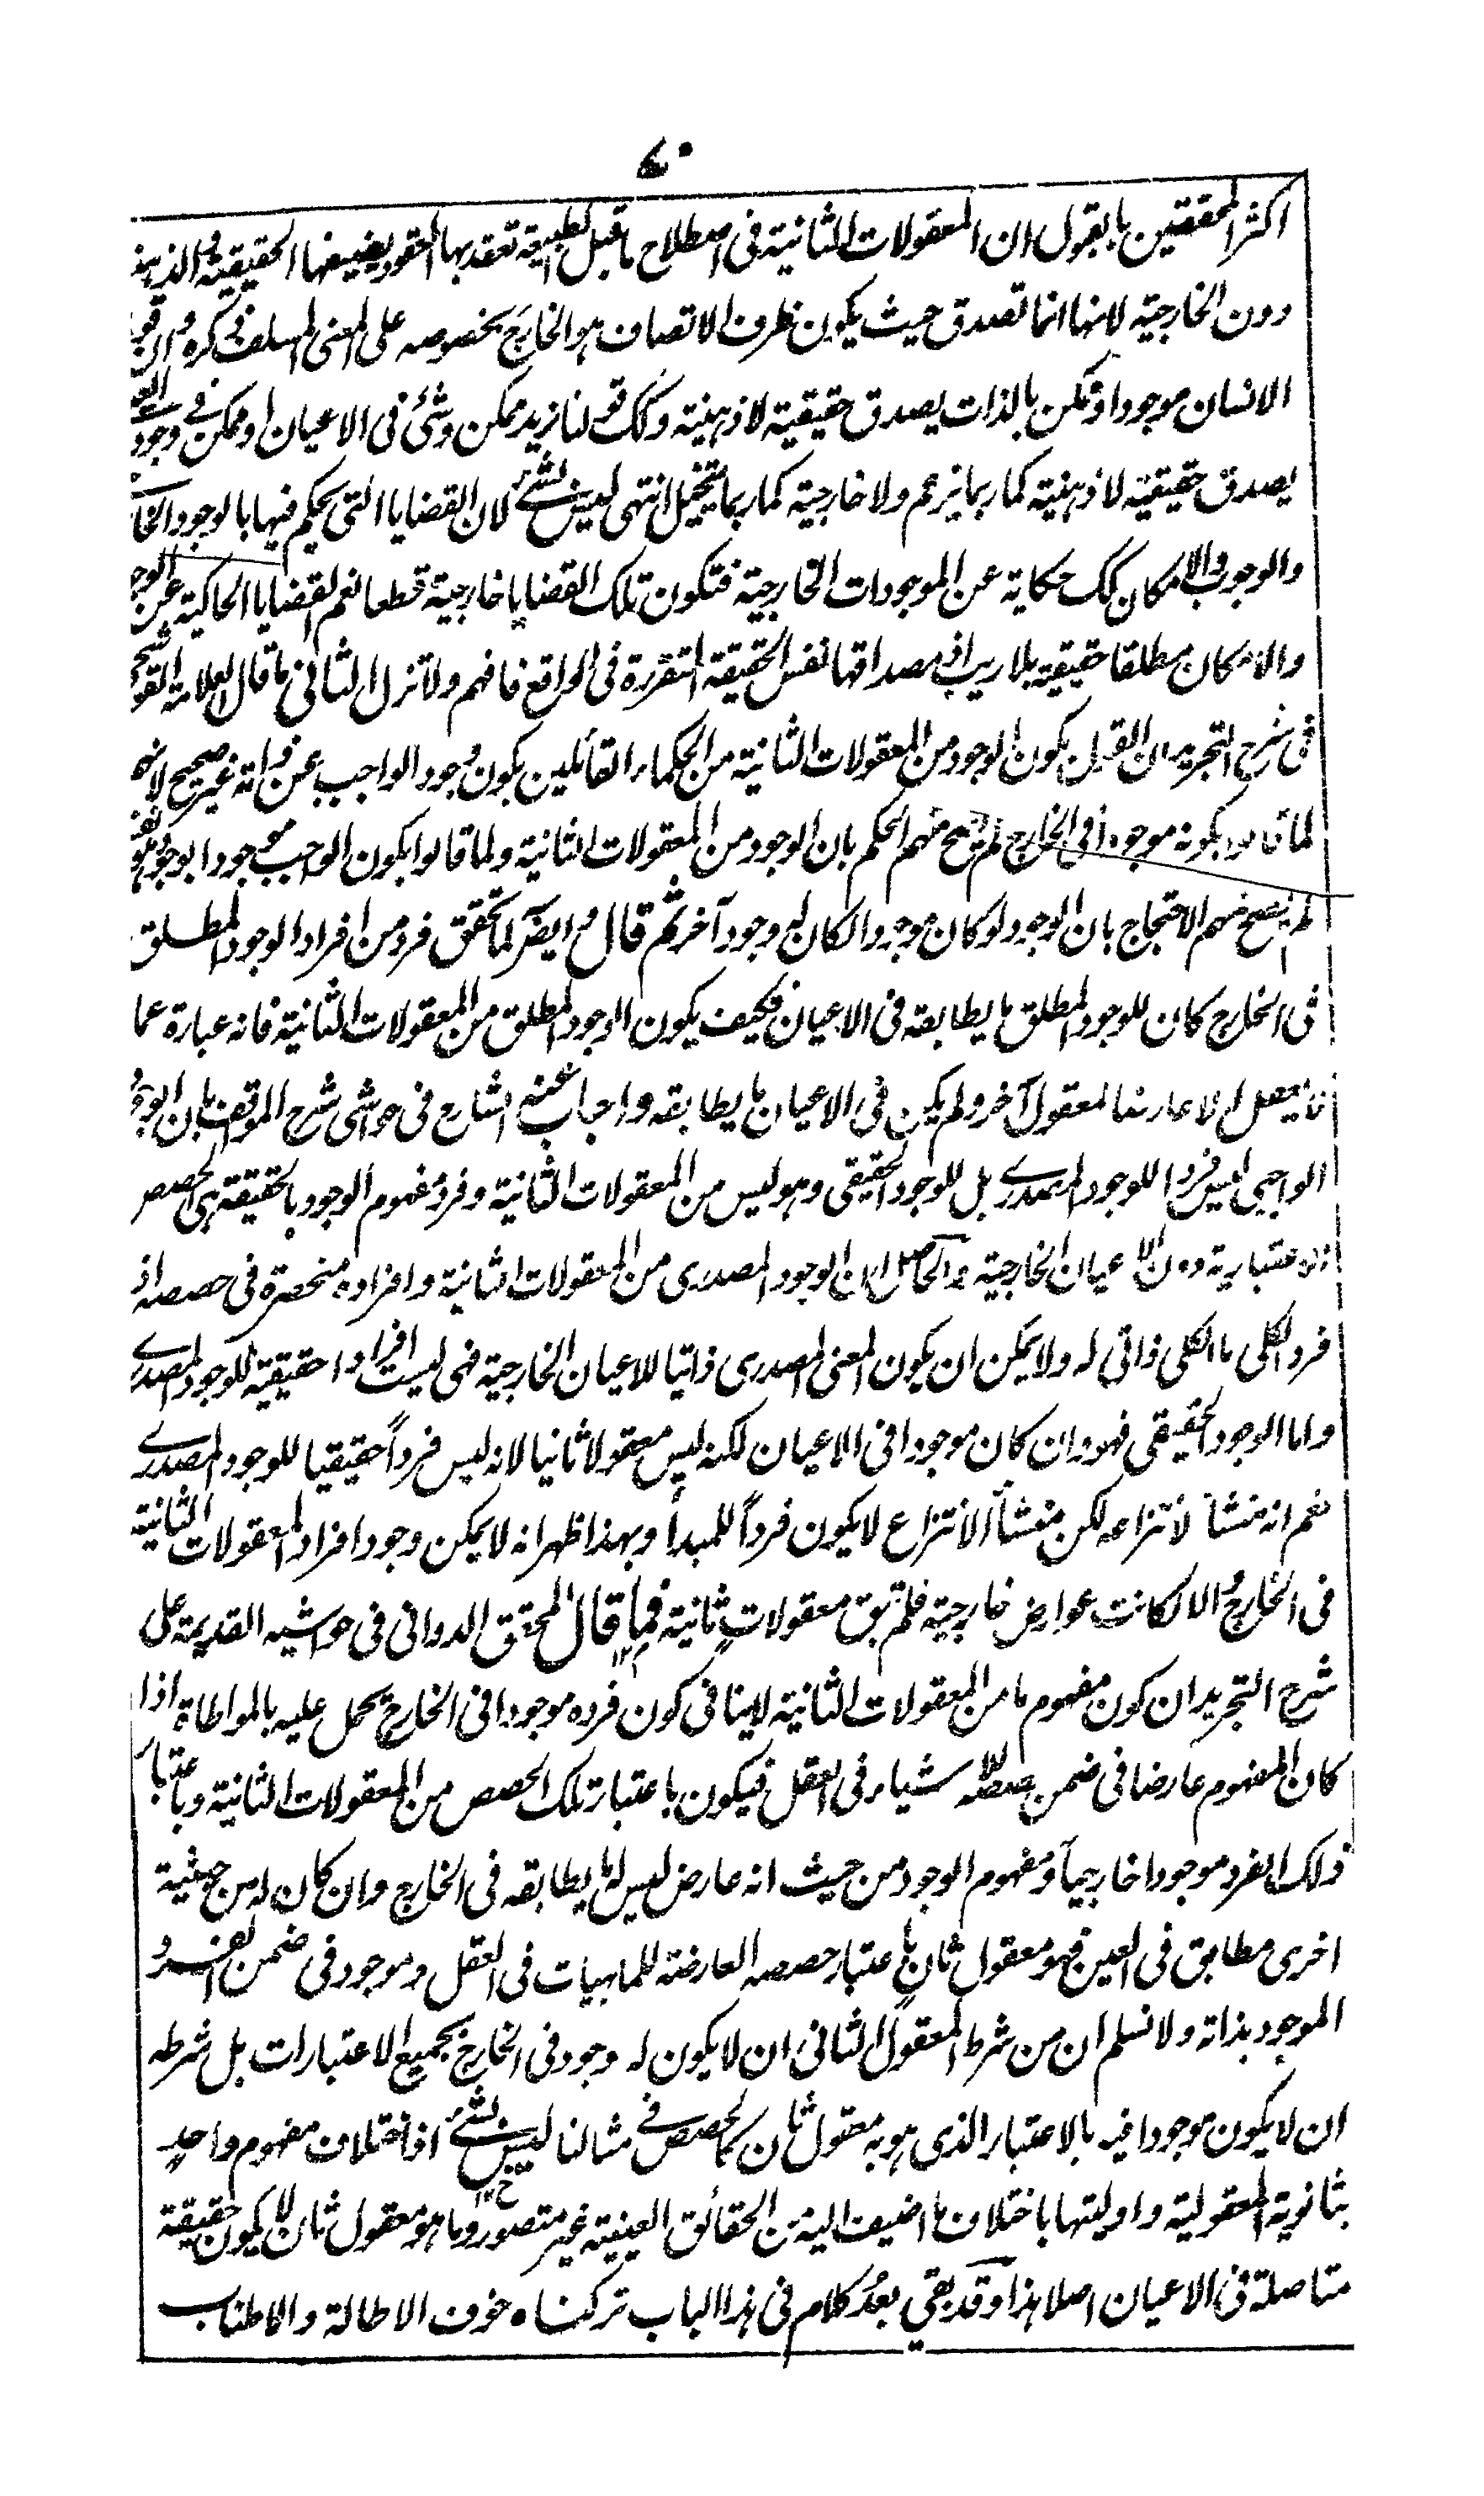 ٤٠
اكثر المحققين ما بقول ان المعقولات الثانية فى اصطلاح ما قبل الطبيعة تعقد بها العقود بضيفها الحقيقية والذهنية
دون الخارجية لانها انما تصدق حيث يكون ظرف الاتصاف هو الخارج بخصوصه على المعنى المسلف ذكره وان قولنا
الانسان موجود او ممكن بالذات يصدق حقيقية لا ذهنية وكك قولنا زيد ممكن وشئ فى الاعيان او ممكن فى وجوده
يصدق حقيقية لا ذهنية كما ربما يزعم ولا خارجية كما ربما يتخيل انتهى ليس بشئ لان القضايا التى يحكم فيها بالوجود الخار
والوجوب والامكان كك حكاية عن الموجودات الخارجية فتكون تلك القضايا خارجية قطعا نعم القضايا الحاكية عن الوجو
والامكان مطلقا حقيقية بلا ريب اذ مصداقها نفس الحقيقة المتقررة فى الواقع فافهم ولا تزل الثانى ما قال العلامة القوشجى
فى شرح التجريد ان القول بكون الوجود من المعقولات الثانية من الحكماء القائلين بكون وجود الواجب عين ذاته غير صحيح لانهم
لما قالوا بكونه موجودا فى الخارج لم يصح منهم الحكم بان الوجود من المعقولات الثانية ولما قالوا بكون الواجب موجودا بوجود هو نفسه
لم يصح منهم الاحتجاج بان الوجود لو كان موجودا لكان له وجود آخر ثم قال وايضا لما تحقق فرد من افراد الوجود المطلق
فى الخارج كان للوجود المطلق ما يطابقه فى الاعيان فكيف يكون الوجود المطلق من المعقولات الثانية فانه عبارة عما
لا يعقل الا عارضا لمعقول آخر ولم يكن فى الاعيان ما يطابقه واجاب عنه الشارح فى حواشى شرح المواقف بان الوجود
الواجبى ليس فردا للوجود المصدرى بل للوجود الحقيقى وهو ليس من المعقولات الثانية وفرد مفهوم الوجود بالحقيقة هى الحصص
الاعتبارية دون الاعيان الخارجية والحاصل ان الوجود المصدرى من المعقولات الثانية وافراده منحصرة فى حصصه اذ
فرد الكلى ما الكلى ذاتى له ولا يمكن ان يكون المعنى المصدرى ذاتيا للاعيان الخارجية فهى ليست افرادا حقيقية للوجود المصدرى
واما الوجود الحقيقى فهو وان كان موجودا فى الاعيان لكنه ليس معقولا ثانيا لانه ليس فرداً حقيقيا للوجود المصدرى
نعم انه منشأ لانتزاعه لكن منشأ الانتزاع لا يكون فرداً للمبدأ وبهذا ظهر انه لا يمكن وجود افراد المعقولات الثانية
فى الخارج والا لكانت عوارض خارجية فلم تبق معقولاتٍ ثانية فما قال المحقق الدوانى فى حواشيه القديمة على
شرح التجريد ان كون مفهوم ما من المعقولات الثانية لا ينافى كون فرده موجودا فى الخارج يحمل عليه بالمواطاة اذا
كان المفهوم عارضا فى ضمن حصصه للاشياء فى العقل فيكون باعتبار تلك الحصص من المعقولات الثانية وباعتبار
ذلك الفرد موجودا خارجياً ومفهوم الوجود من حيث انه عارض ليس له ما يطابقه فى الخارج وان كان له من حيثية
اخرى مطابق فى العين فهو معقول ثانٍ باعتبار حصصه العارضة للماهيات فى العقل وموجود فى ضمن الفرد
الموجود بذاته ولا نسلم ان من شرط المعقول الثانى ان لا يكون له وجود فى الخارج بجميع الاعتبارات بل شرطه
ان لا يكون موجودا فيه بالاعتبار الذى هو به معقول ثان كالحصص فى مثالنا ليس بشئ اذ اختلاف مفهوم واحدٍ
بثانوية المعقولية واوليتها باختلاف ما اضيف اليه من الحقائق العينية غير متصور وما هو معقول ثان لا يكون حقيقة
متاصلة فى الاعيان اصلا هذا وقد بقي بعدُ كلام فى هذا الباب تركناه خوف الاطالة والاطناب